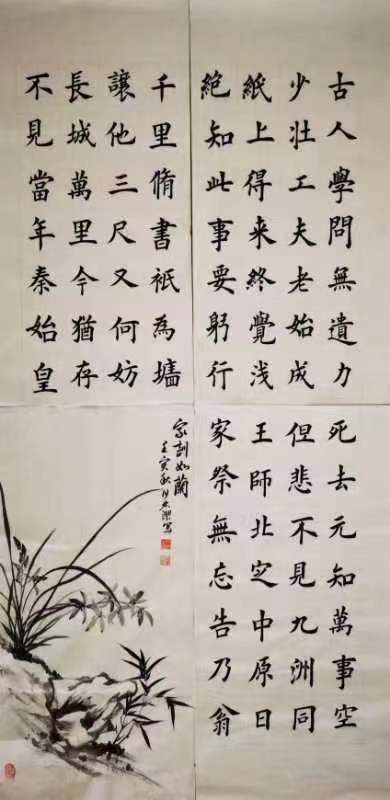 古人學問無遺力
少壯工夫老始成
紙上得来終覺浅
絶知此事要躬行
千里脩書祇為墻
讓他三尺又何妨
長城萬里今猶存
不見當年秦始皇
死去元知萬事空
但悲不見九洲同
王師北定中原日
家祭無忘告乃翁
家訓如蘭
壬寅秋